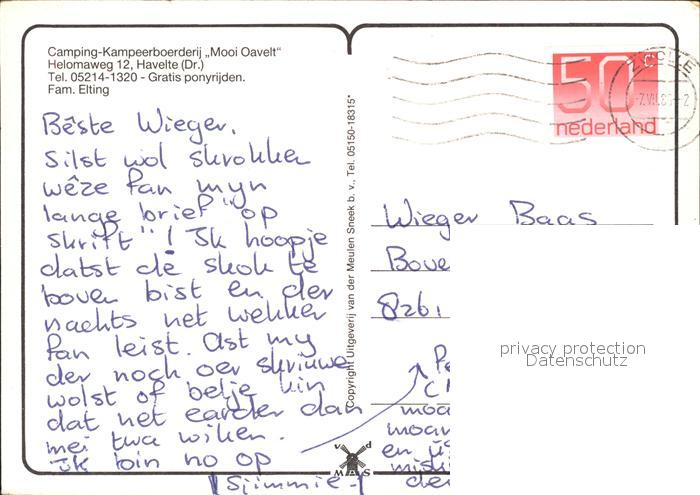 Camping-Kampeerboerderij „Mooi Oavelt"
Helomaweg 12, Havelte (Dr.)
Tel. 05214-1320 - Gratis ponyrijden.
Fam. Elting
Bêste Wieger,
Silst wol skrokken
wêze fan myn
lange brief "op
skrift"! Ik hoopje
datst dé skok te
boven bist en der
nachts net wekker
fan leist. Ast my
der noch oer skriuwe
wolst of belje kin
dat net earder dan
mei twa wiken.
Ik bin no op
Sjimmie-
Copyright Uitgeverij van der Meulen Sneek b.v., Tel. 05150-18315*
v d
MAS
50 c
nederland
ZWOLLE
Wieger Baas
Bove
8261
privacy protection
Datenschutz
moa
moar
en